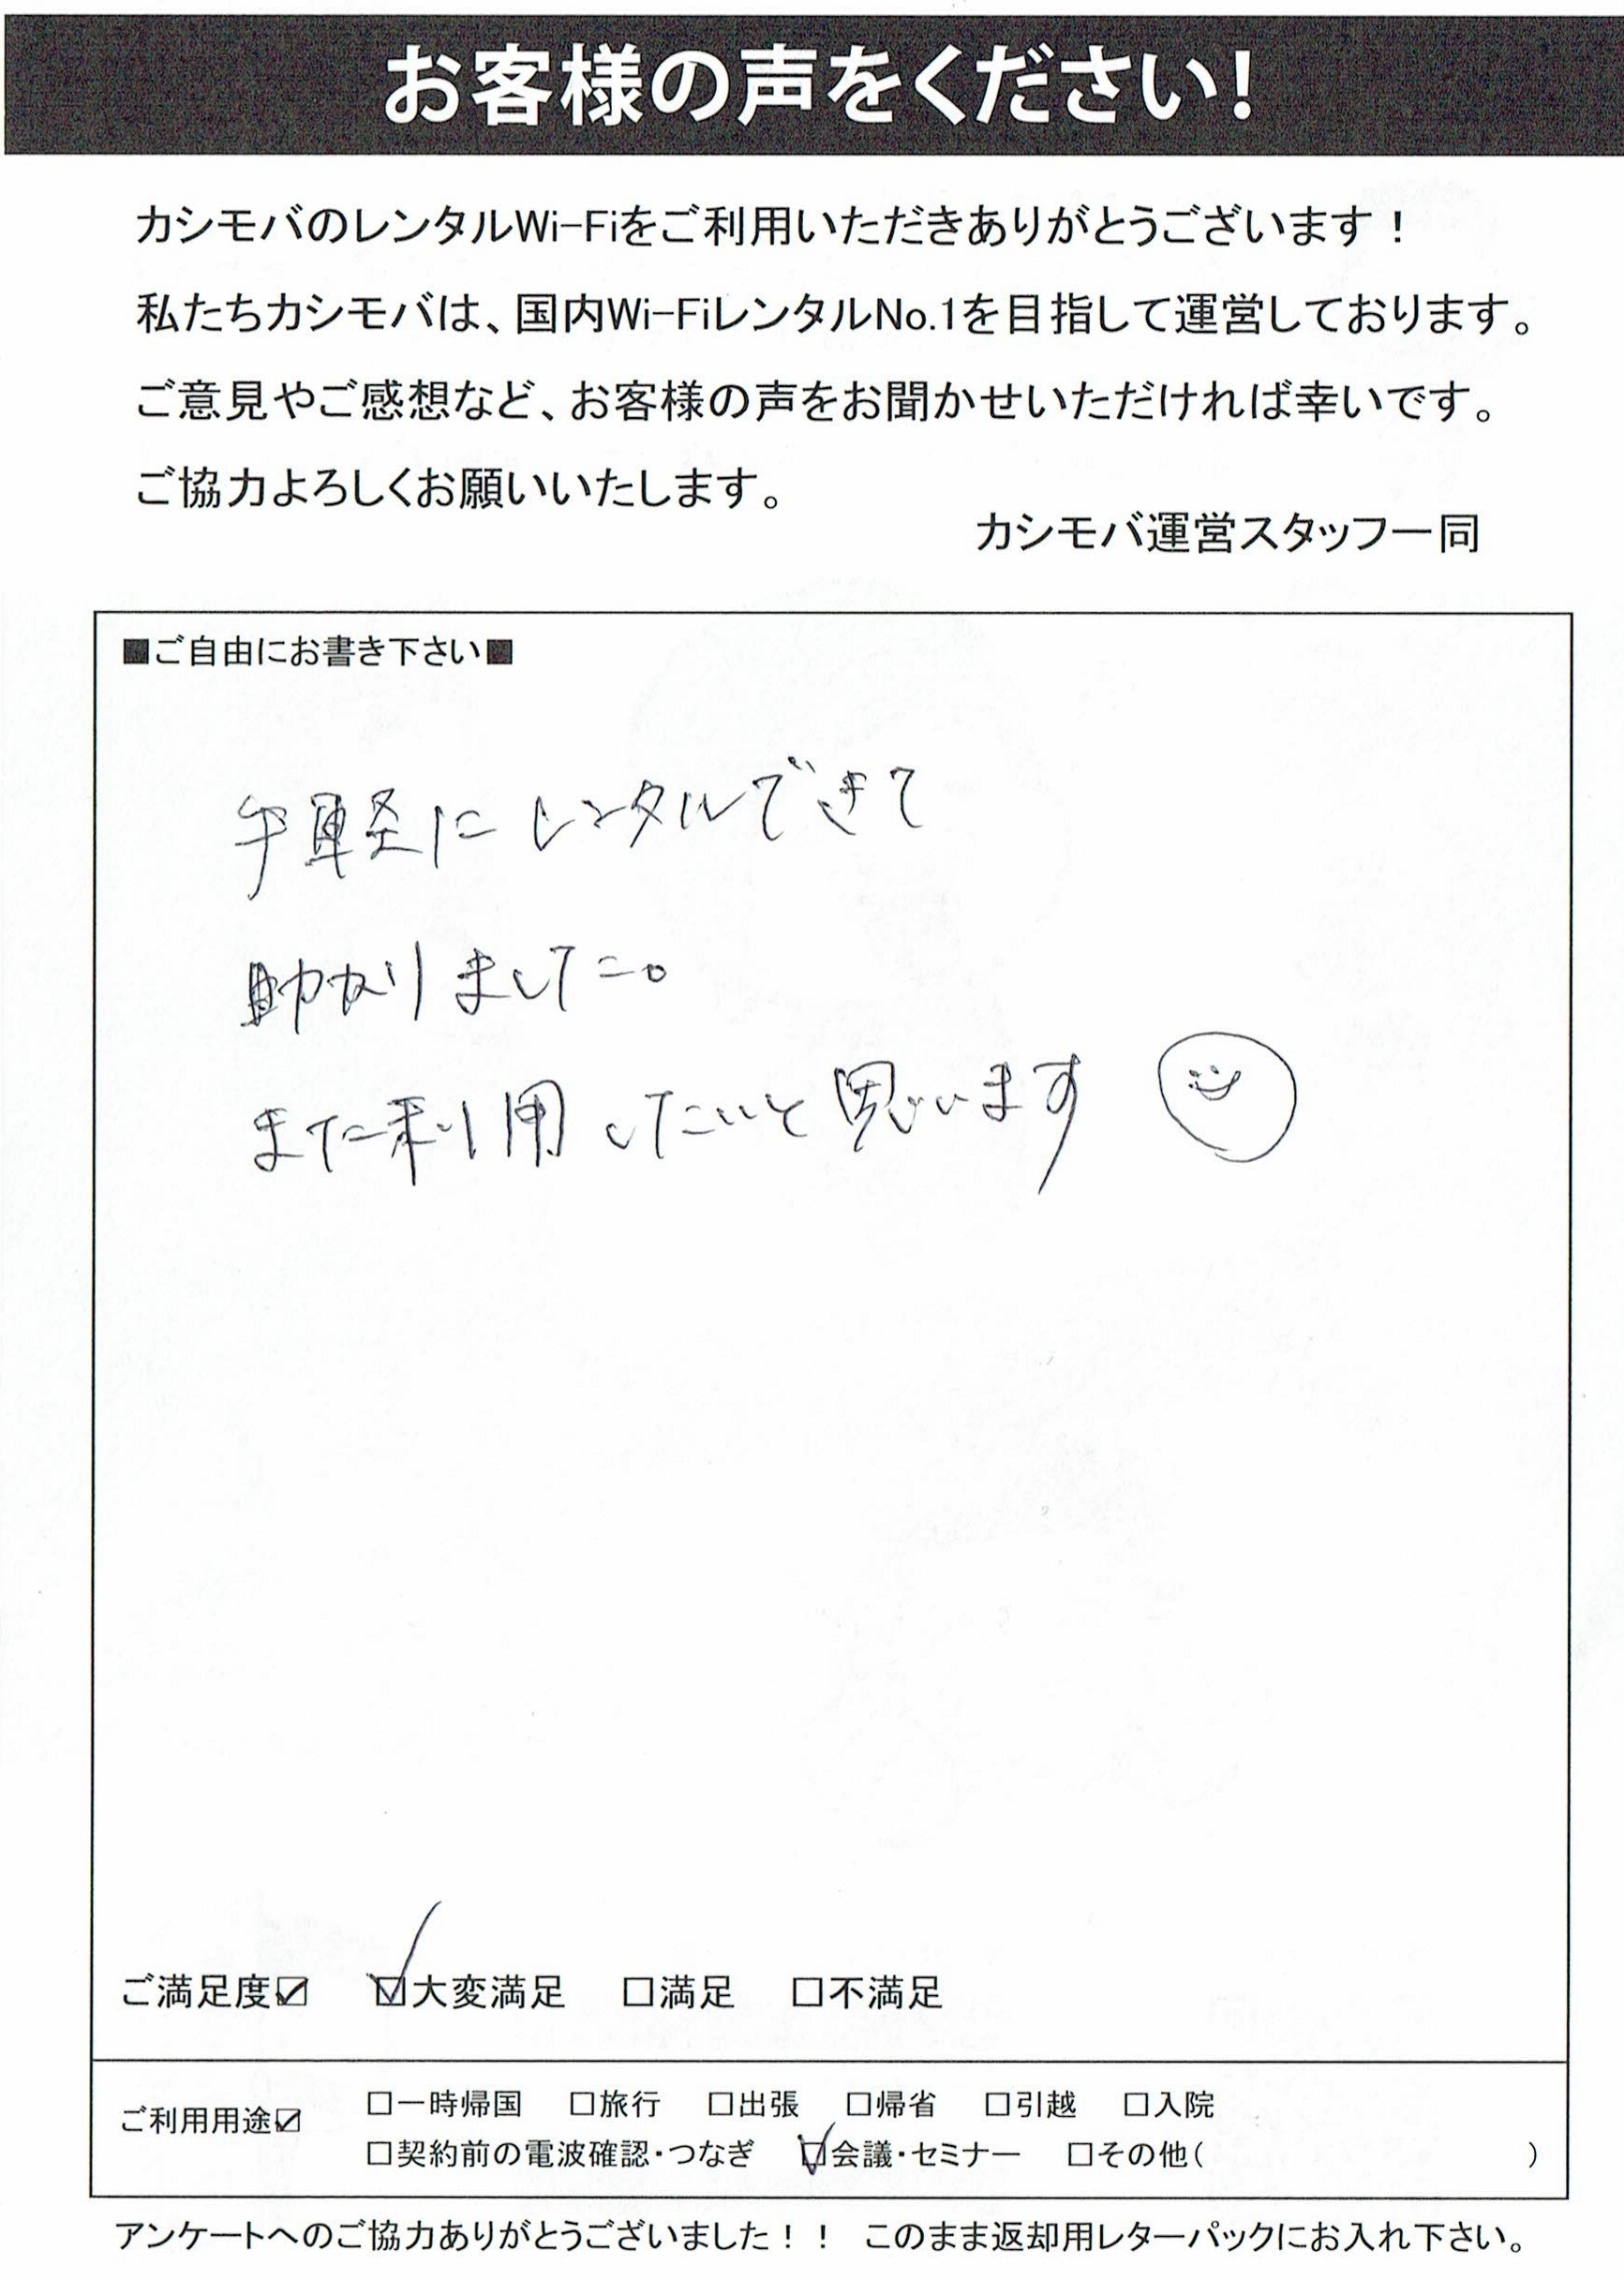 お客様の声をください!
カシモバのレンタルWi-Fiをご利用いただきありがとうございます！
私たちカシモバは、国内Wi-FiレンタルNo.1を目指して運営しております。
ご意見やご感想など、お客様の声をお聞かせいただければ幸いです。
ご協力よろしくお願いいたします。
カシモバ運営スタッフ一同
■ご自由にお書き下さい■
手軽にレンタルできて
助かりました。
また利用したいと思います
ご満足度☑ ☑大変満足 □満足 □不満足
ご利用用途☑ □一時帰国 □旅行 □出張 □帰省 □引越 □入院
□契約前の電波確認・つなぎ ☑会議・セミナー □その他( )
アンケートへのご協力ありがとうございました！！ このまま返却用レターパックにお入れ下さい。